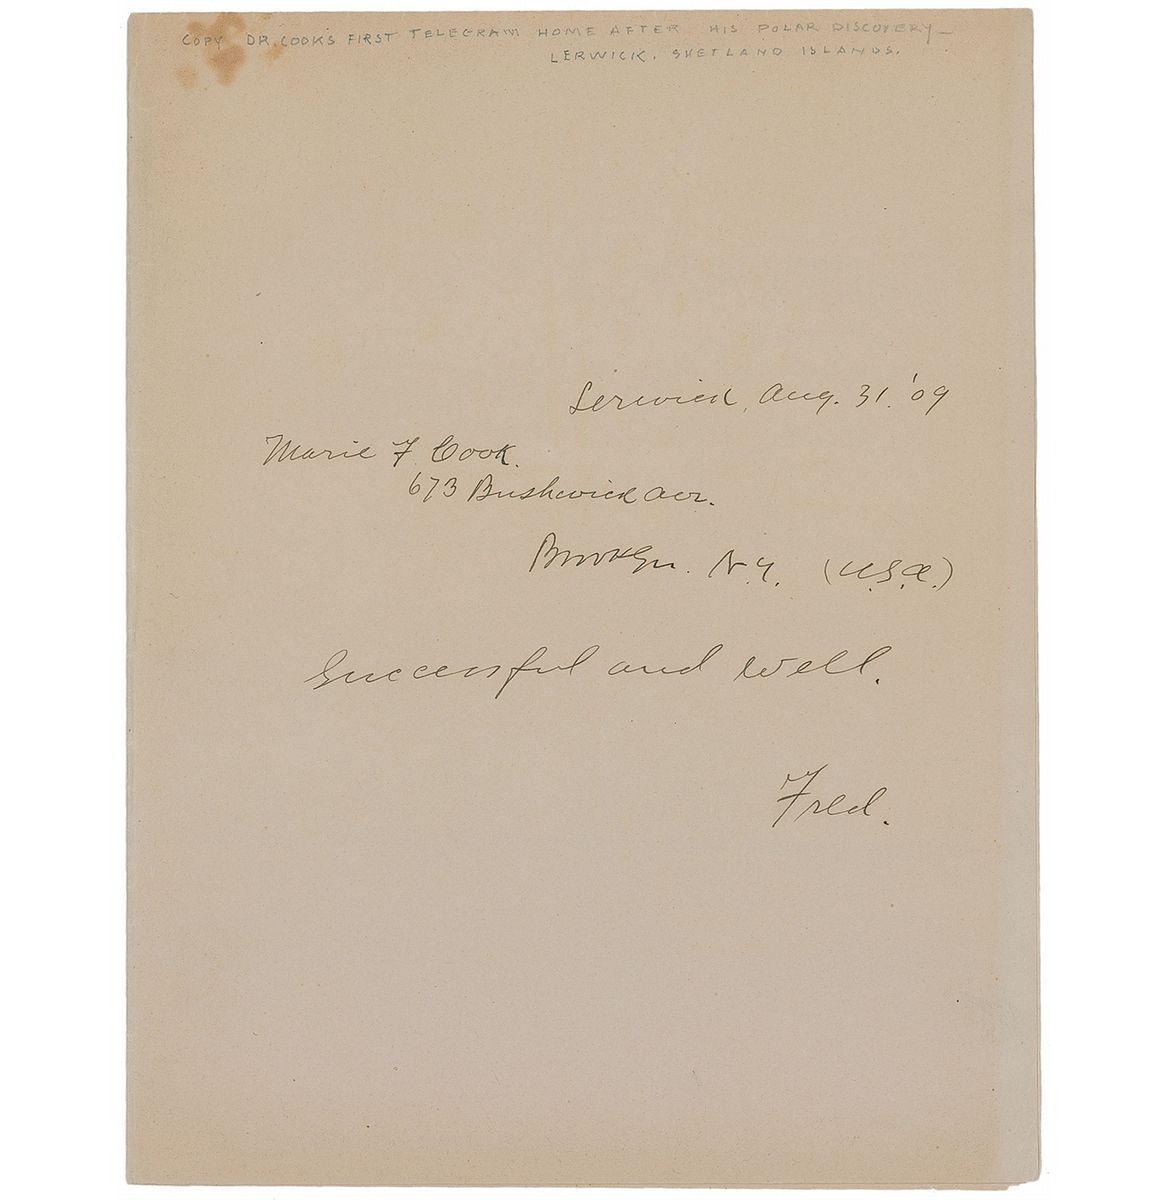 COPY DR. COOK'S FIRST TELEGRAM HOME AFTER HIS POLAR DISCOVERY—
LERWICK, SHETLAND ISLANDS.
Lerwick, Aug. 31. '09
Marie F. Cook.
673 Bushwick Ave.
Brooklyn. N.Y. (U.S.A.)
Successful and well.
Fred.